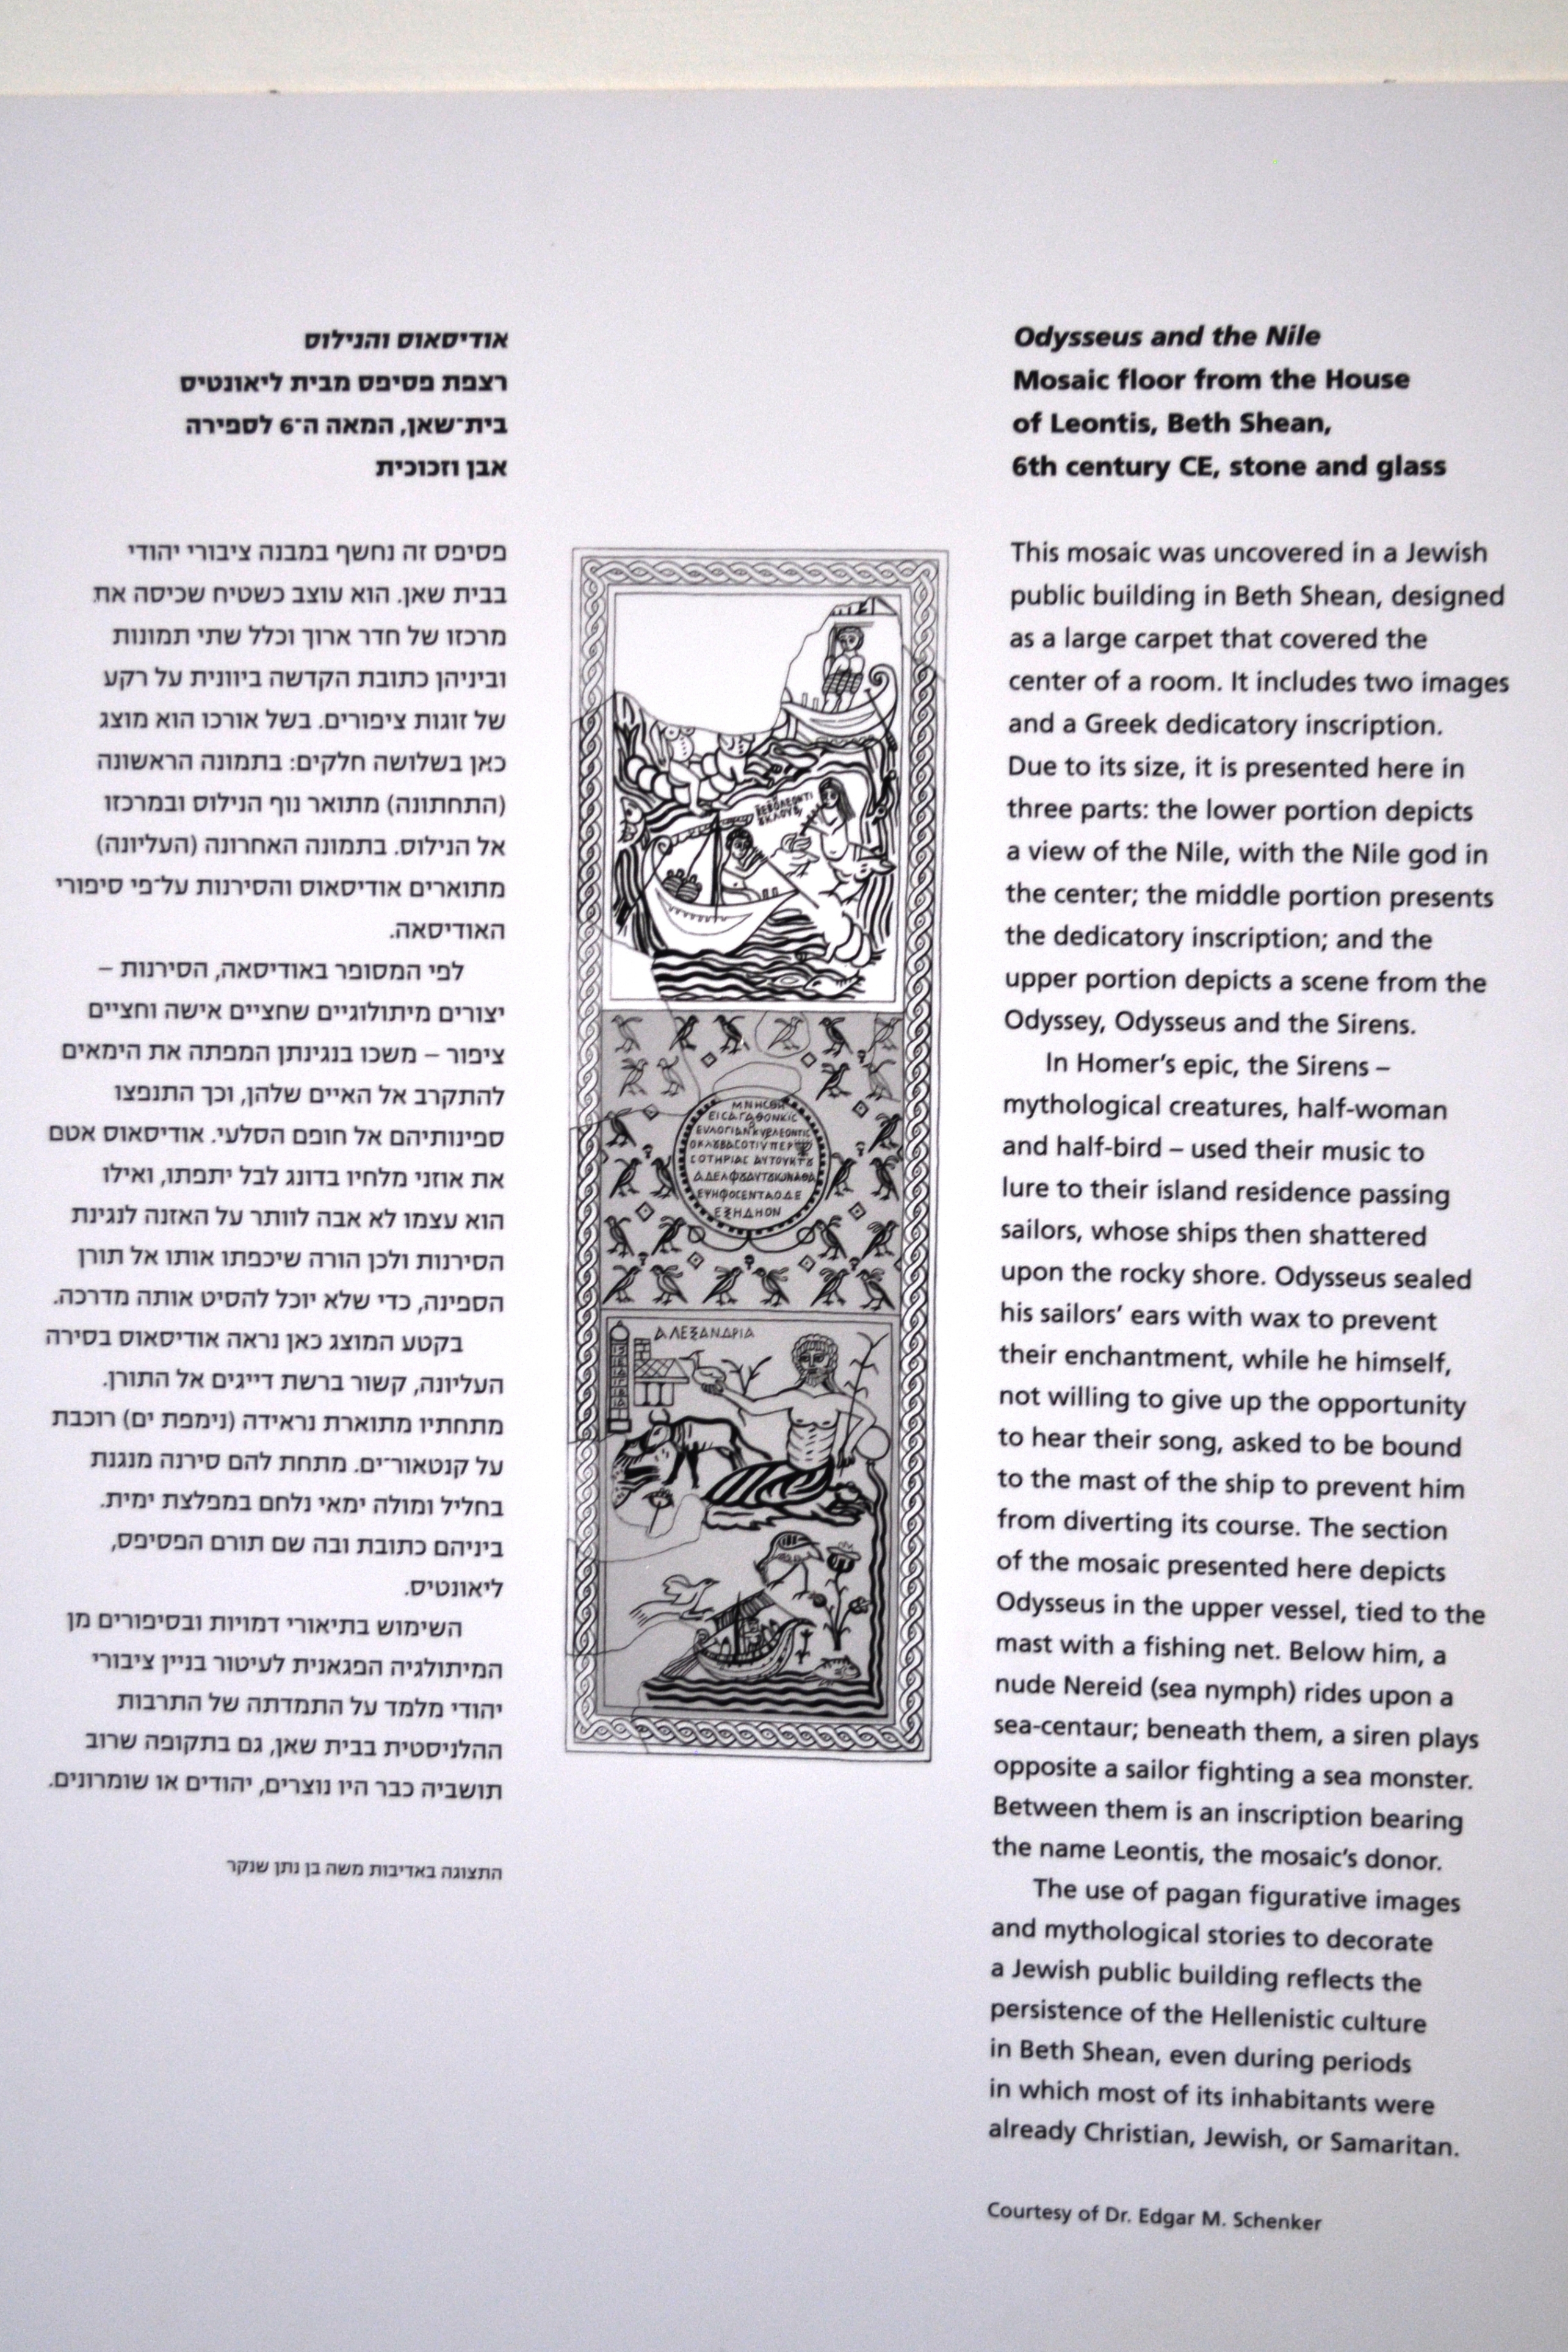 אודיסאוס והנילוס
רצפת פסיפס מבית ליאונטיס
בית־שאן, המאה ה־6 לספירה
אבן וזכוכית
פסיפס זה נחשף במבנה ציבורי יהודי
בבית שאן. הוא עוצב כשטיח שכיסה את
מרכזו של חדר ארוך וכלל שתי תמונות
וביניהן כתובת הקדשה ביוונית על רקע
של זוגות ציפורים. בשל אורכו הוא מוצג
כאן בשלושה חלקים: בתמונה הראשונה
(התחתונה) מתואר נוף הנילוס ובמרכזו
אל הנילוס. בתמונה האחרונה (העליונה)
מתוארים אודיסאוס והסירנות על־פי סיפורי
האודיסאה.
לפי המסופר באודיסאה, הסירנות –
יצורים מיתולוגיים שחציים אישה וחציים
ציפור – משכו בנגינתן המפתה את הימאים
להתקרב אל האיים שלהן, וכך התנפצו
ספינותיהם אל חופם הסלעי. אודיסאוס אטם
את אוזני מלחיו בדונג לבל יתפתו, ואילו
הוא עצמו לא אבה לוותר על האזנה לנגינת
הסירנות ולכן הורה שיכפתו אותו אל תורן
הספינה, כדי שלא יוכל להסיט אותה מדרכה.
בקטע המוצג כאן נראה אודיסאוס בסירה
העליונה, קשור ברשת דייגים אל התורן.
מתחתיו מתוארת נראידה (נימפת ים) רוכבת
על קנטאור־ים. מתחת להם סירנה מנגנת
בחליל ומולה ימאי נלחם במפלצת ימית.
ביניהם כתובת ובה שם תורם הפסיפס,
ליאונטיס.
השימוש בתיאורי דמויות ובסיפורים מן
המיתולוגיה הפגאנית לעיטור בניין ציבורי
יהודי מלמד על התמדתה של התרבות
ההלניסטית בבית שאן, גם בתקופה שרוב
תושביה כבר היו נוצרים, יהודים או שומרונים.
התצוגה באדיבות משה בן נתן שנקר
ΑΛΕΞΑΝΔΡΙΑ
Odysseus and the Nile
Mosaic floor from the House
of Leontis, Beth Shean,
6th century CE, stone and glass
This mosaic was uncovered in a Jewish
public building in Beth Shean, designed
as a large carpet that covered the
center of a room. It includes two images
and a Greek dedicatory inscription.
Due to its size, it is presented here in
three parts: the lower portion depicts
a view of the Nile, with the Nile god in
the center; the middle portion presents
the dedicatory inscription; and the
upper portion depicts a scene from the
Odyssey, Odysseus and the Sirens.
In Homer's epic, the Sirens –
mythological creatures, half-woman
and half-bird – used their music to
lure to their island residence passing
sailors, whose ships then shattered
upon the rocky shore. Odysseus sealed
his sailors' ears with wax to prevent
their enchantment, while he himself,
not willing to give up the opportunity
to hear their song, asked to be bound
to the mast of the ship to prevent him
from diverting its course. The section
of the mosaic presented here depicts
Odysseus in the upper vessel, tied to the
mast with a fishing net. Below him, a
nude Nereid (sea nymph) rides upon a
sea-centaur; beneath them, a siren plays
opposite a sailor fighting a sea monster.
Between them is an inscription bearing
the name Leontis, the mosaic's donor.
The use of pagan figurative images
and mythological stories to decorate
a Jewish public building reflects the
persistence of the Hellenistic culture
in Beth Shean, even during periods
in which most of its inhabitants were
already Christian, Jewish, or Samaritan.
Courtesy of Dr. Edgar M. Schenker